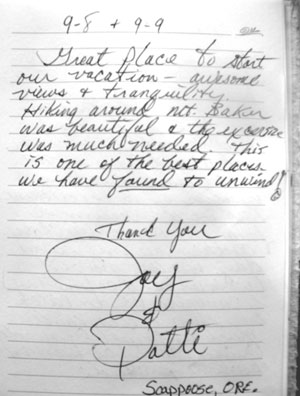 9-8 + 9-9
Great Place to start
our vacation - awesome
views & tranquility.
Hiking around mt. Baker
was beautiful & the exercise
was much needed. This
is one of the best places
we have found to unwind!
Thank You
Joey
&
Patti
Scappoose, ORE.